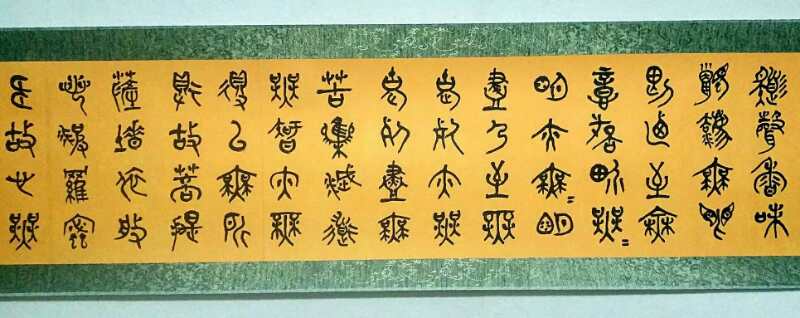 色聲香味
觸法無眼
界乃至無
意識界無〻
明亦無〻明
盡乃至無
老死亦無
老死盡無
苦集滅道
無智亦無
得以無所
得故菩提
薩埵依般
若波羅蜜
多故心無